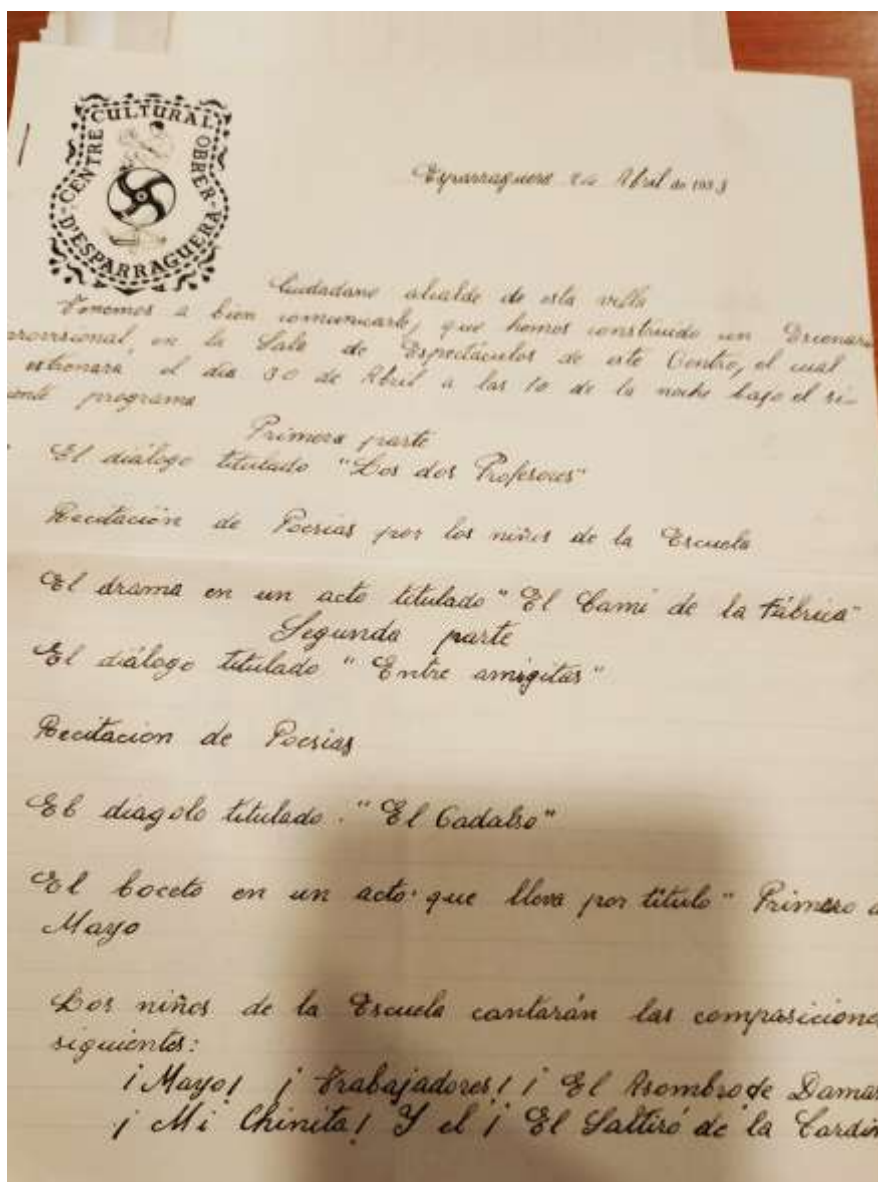 CENTRE CULTURAL OBRER D'ESPARRAGUERA
Esparraguera Abril de 1933
Ciudadano alcalde de esta villa
Tenemos a bien comunicarle, que hemos construido un Escenario
provisional, en la Sala de Espectáculos de este Centro, el cual
estrenara el dia 30 de Abril a las 10 de la noche bajo el si-
ente programa
Primera parte
El diálogo titulado "Los dos Profesores"
Recitación de Poesias por los niños de la Escuela
El drama en un acto titulado "El Cami de la Fábrica"
Segunda parte
El diálogo titulado "Entre amigitas"
Recitacion de Poesias
El diagolo titulado "El Cadalso"
El boceto en un acto que lleva por título "Primero d
Mayo
Los niños de la Escuela cantarán las composicione
siguientes:
¡Mayo! ¡Trabajadores! ¡El Asombro de Damas
¡Mi Chinita! Y el ¡El Saltiró de la Cardin